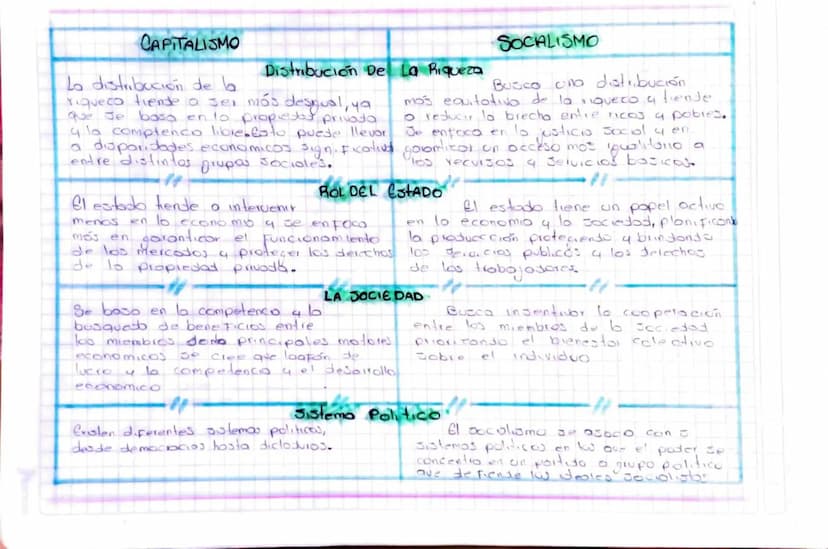 CAPITALISMO
SOCALISMO
Distribución De La Riqueza
La distribución de la
riqueca tiende a ser más desigual, ya
que se basa en la propiedad privada
y la comptencia libre. Esto puede llevar
a disparidades economicas significativas
entre distintos grupos sociales.
Busca una distribución
más equitativa de la riqueca y tiende
a reducir la brecha entre ricos y pobres.
Se enfoca en la justicia social y en
garantizar un acceso mas igualitario a
los recursos y servicios basicos.
ROL DEL ESTADO
El estado tiende a intervenir
menos en la economia y se enfoca
más en garanticar el funcionamiento
de los mercados y proteger los derechos
de la propiedad privada.
El estado tiene un papel activo
en la economia y la sociedad, planificando
la produccción protegiendo y brindando
los servicios publicos y los derechos
de los trabajadores
LA SOCIEDAD
Se basa en la competencia y la
busqueda de beneficios entre
los miembros principales motores
economicos se cree que de
lucro y la competencia y el desarrollo
economico
Busca insentivar la cooperación
entre los miembros de la sociedad
priorizando el bienestar colectivo
sobre el individuo
Sistema Politico
Existen diferentes sistemas politicos,
desde democracias hasta dictaduras.
El socalismo se asocia con
sistemas politicos en los que el poder se
concentra en un partido o grupo politico
que defiende los ideales socialistas